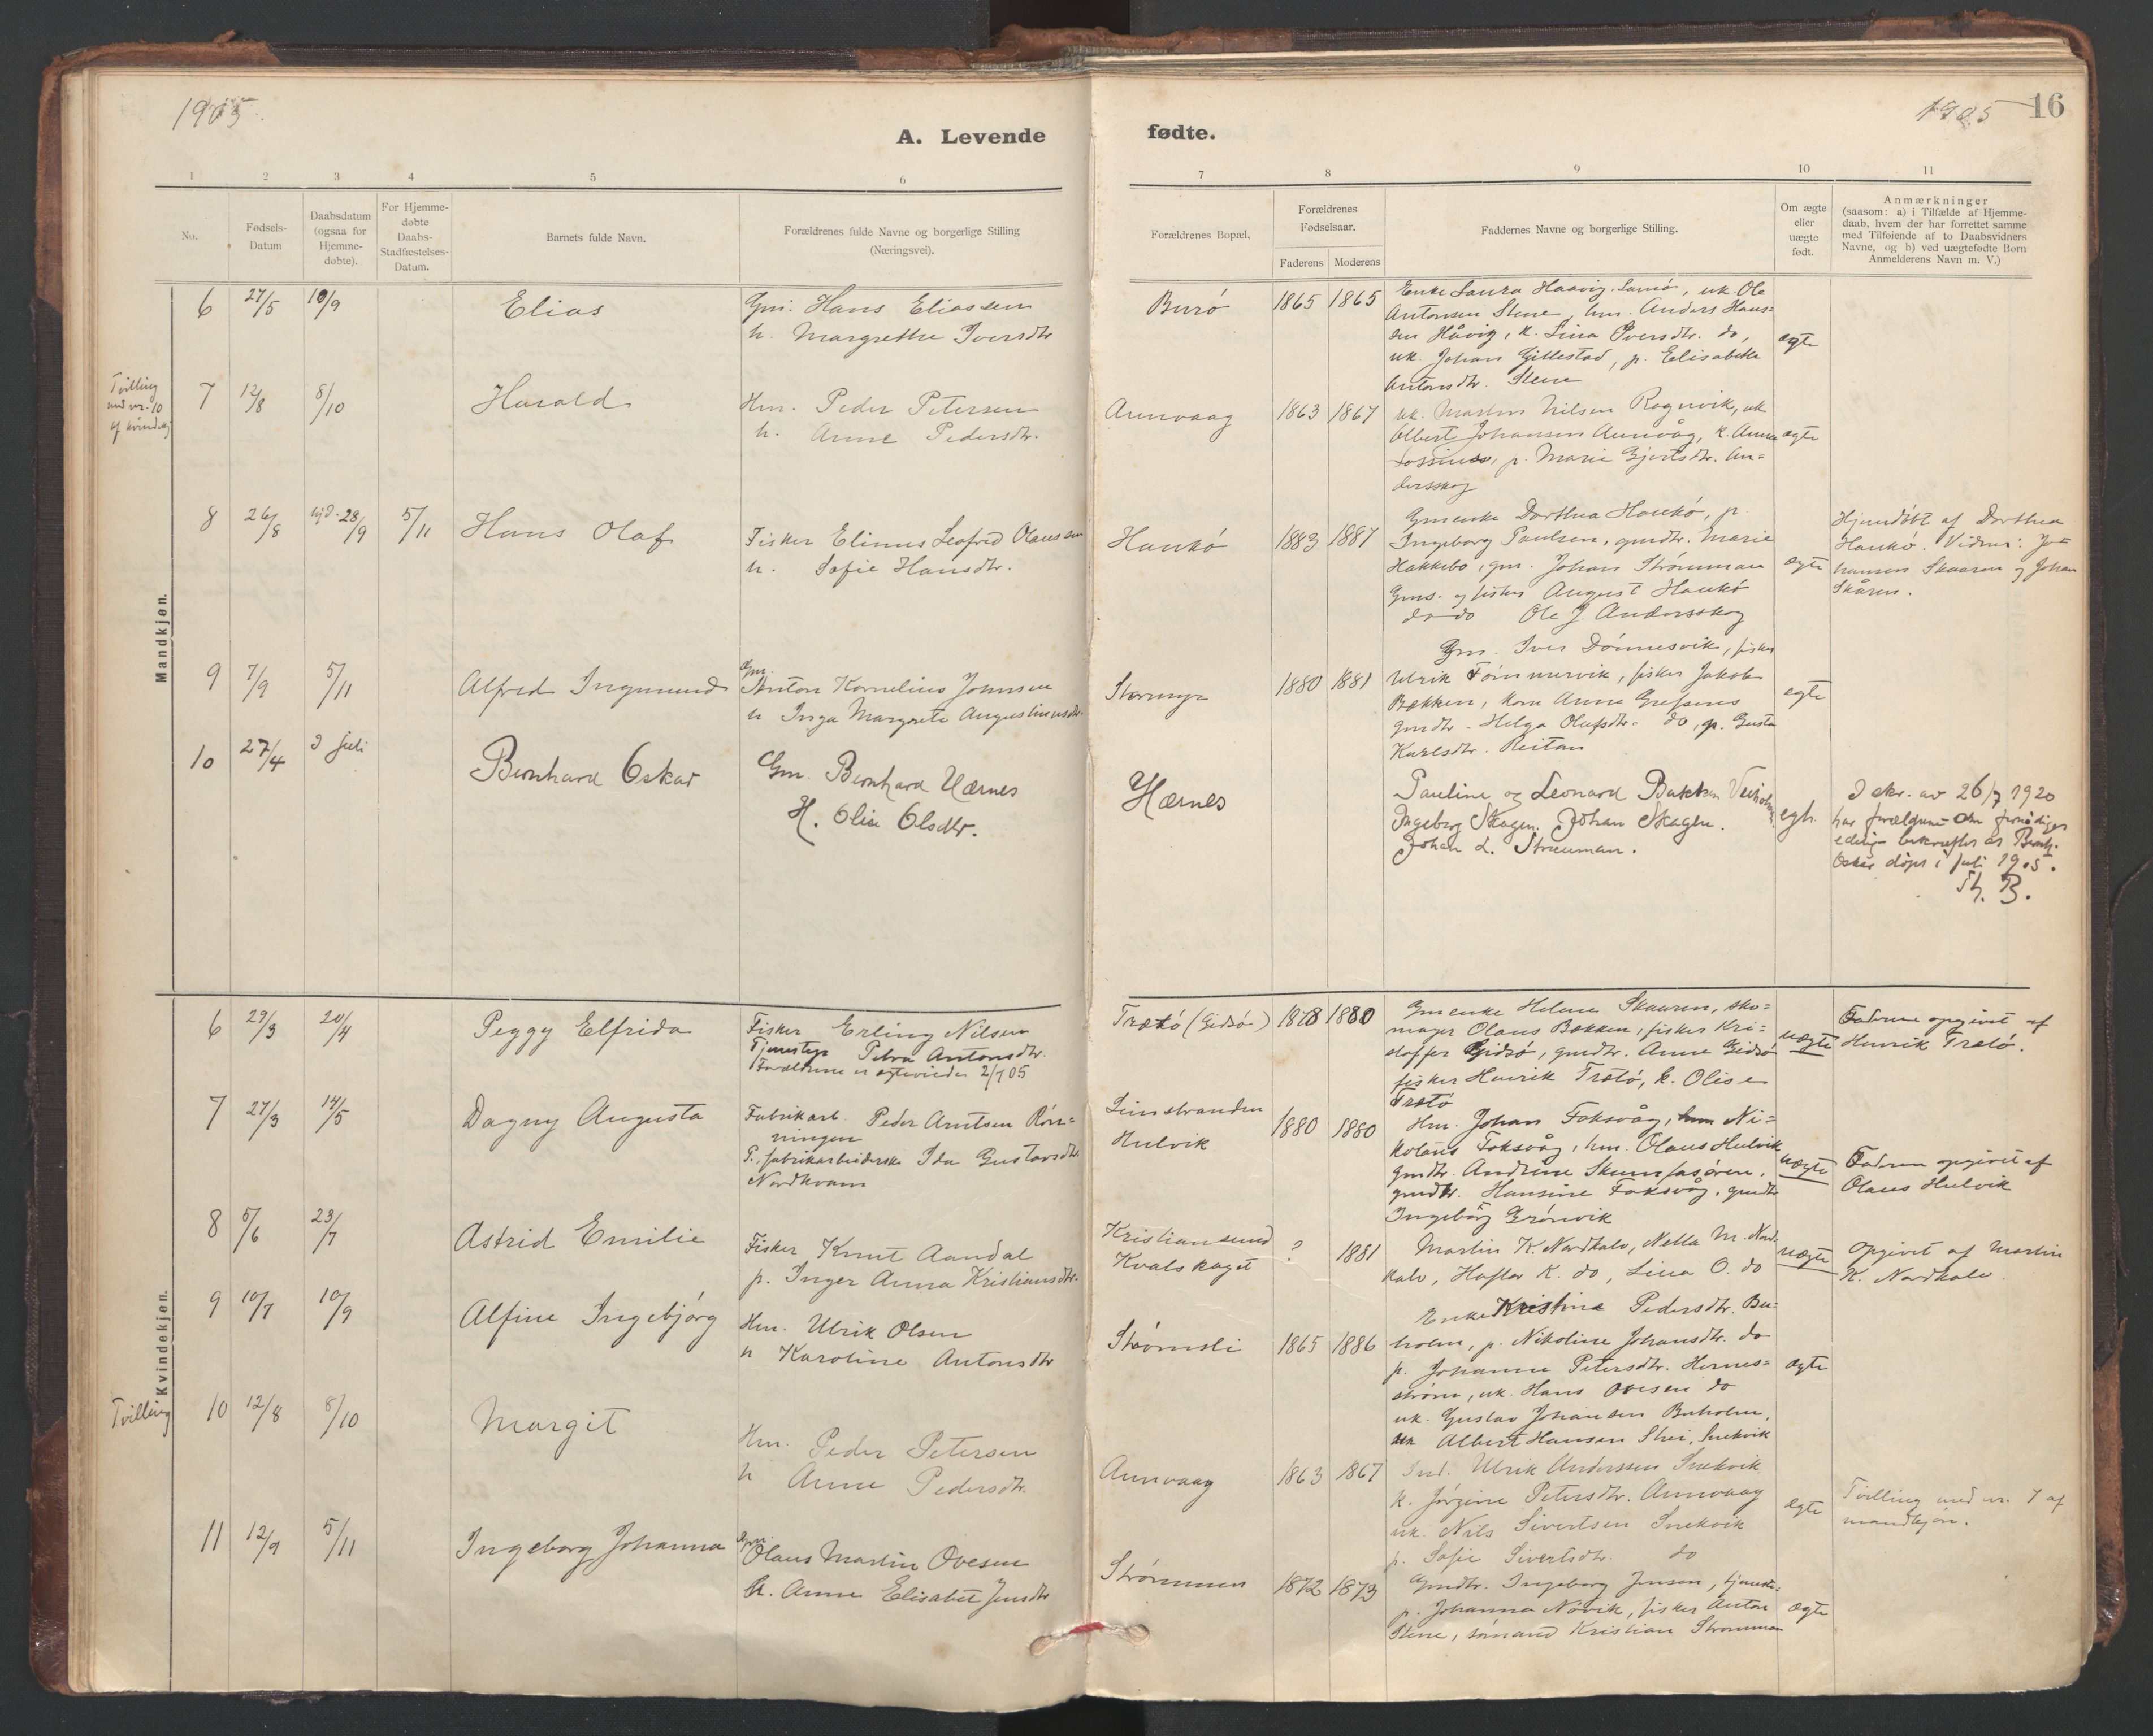 1905.
1905
16
A. Levende
fødte.
1 2 3 4 5 6
7 8 9 10 11
No.
Fødsels-
Datum
Daabsdatum
(ogsaa for
Hjemme-
døbte).
For Hjemme-
døbte
Daabs-
Stadfæstelses-
Datum.
Barnets fulde Navn.
Forældrenes fulde Navne og borgerlige Stilling
(Næringsvei).
Forældrenes Bopæl.
Forældrenes
Fødselsaar.
Faderens Moderens
Faddernes Navne og borgerlige Stilling.
Om ægte
eller
uægte
født.
Anmærkninger
(saasom: a) i Tilfælde af Hjemme-
daab, hvem der har forrettet samme
med Tilføiende af to Daabsvidners
Navne, og b) ved uægtefødte Børn
Anmelderens Navn m. V.)
Mandkjøn.
6 27/5 10/9 Elias
Gm. Hans Eliassen
h. Margrethe Iversdtr
Burø 1865 1865
Enke Laura Haavig, uk. Ole
Antonsen Stene, hm. Anders Hans=
sen Håvig, k. Lina Oversdtr. do,
uk. Johan Gillestad, p. Elisabeth
Antonsdtr. Stene
ægte
Tvilling
med nr. 10
af kvindekj
7 12/8 8/10 Harald
Hm. Peder Petersen
h. Anne Pedersdtr.
Aunvaag 1863 1867
uk. Martin Nilsen Rognvik, uk
Albert Johansen Aunvåg, k. Anna
p. Marie Gjertsdtr. An=
dersskog
ægte
8 26/8 hjd. 28/9 5/11 Hans Olaf
Fisker Elinus Leofred Olaussen
h. Sofie Hansdtr.
Haukø 1883 1887
Gmenke Dorthea Haukø, p.
Ingeborg Paulsen, gmdtr. Marie
Hakkebo, gm. Johan Strømman
Gms. og fisker August Haukø
do do Ole J. Andersskog
ægte
Hjemdøbt af Dorthea
Haukø. Vidner: Jo=
hansen Skaaren og Johan
Skåren.
9 7/9 5/11 Alfred Ingmund
Gm.
Anton Kornelius Johnsen
h Inga Margrete Augustinusdtr.
Stormyr 1880 1881
Gm. Iver Dønnesvik, fisker
Ulrik Tømmervik, fisker Jakob
Bækken, kom Anne Grefsnes
gmdtr. Helga Olufsdtr. do, p. Gusta
Karlsdtr. Reitan
egte
10 27/4 2 juli Bernhard Oskar
Gm. Bernhard Hærnes
H. Olise Olsdtr.
Hærnes
Pauline og Leonard Bakken Veiholmen
Ingeborg Skagen. Johan Skagen.
Johan L. Strømman.
egte.
I skr. av 26/7 1920
har forældrene
edelig bekræftet at Bernh.
Oskar døpt i juli 1905.
Th. B.
Kvindekjøn.
6 29/3 20/4 Peggy Elfrida
Fisker Erling Nilsen
Tjenestep Petra Antonsdtr.
Forældrene er egteviede 2/7 05
Trætø (Gidsø) 1878 1880
Gmenke Helene Skaaren, sko=
mager Olaus Bækken, fisker Kri=
stoffer Gidsø, gmdtr. Anne Gidsø
fisker Henrik Trætø, k. Olise
Trætø
uægte
Faderne opgivet af
Henrik Trætø.
7 27/3 14/5 Dagny Augusta
Fabrikarb. Peder Arntsen Røn=
ningen
P., fabrikarbeiderske Ida Gustavsdtr.
Nordkvam
Simstranden
Hulvik
1880 1880
Hm. Johan Foksvåg, hm Ni=
kolaus Foksvåg, hm. Olaus Hulvik
gmdtr. Andrine Skumfasøren,
gmdtr. Hansine Foksvåg, gmdtr
Ingebørg Grønvik
uægte
Faderen opgivet af
Olaus Hulvik
8 5/6 23/7 Astrid Emilie
Fisker Knut Aandal
p. Inger Anna Kristiansdtr.
Kristiansund
Kvalskaget
? 1881
Martin K. Nordkalv, Nella M. Nord=
kalv, Haftor K. do, Lina O. do
uægte
Opgivet af Martin
K. Nordkalv.
9 10/7 10/9 Alfine Ingebjørg
Hm. Ulrik Olsen
h Karoline Antonsdtr
Strømsli 1865 1886
Enke Kristine Pedersdtr. Bu=
holm, p. Nikoline Johansdtr. do
p. Johanne Petersdtr. Hernes=
strøm, uk. Hans Ovesen do
uk. Gustav Johansen Buholm,
uk Albert Hansen Snekvik
ægte
Tvilling
10 12/8 8/10 Margit
Hm. Peder Petersen
h Anne Pedersdtr.
Aunvaag 1863 1867
Ind. Ulrik Anderssen Snekvik
k. Jørgine Petersdtr. Aunvaag
uk. Nils Sivertsen Snekvik
p. Sofie Sivertsdtr. do
ægte
Tvilling med nr. 7 af
mandkjøn.
11 12/9 5/11 Ingeborg Johanna
Gm.
Olaus Martin Ovesen
h. Anne Elisabet Jensdtr
Strømmen 1872 1873
Gmdtr. Ingeborg Jensen, tjeneste=
p. Johanna Novik, fisker Anton
Stene, sømand Kristian Strømman
ægte